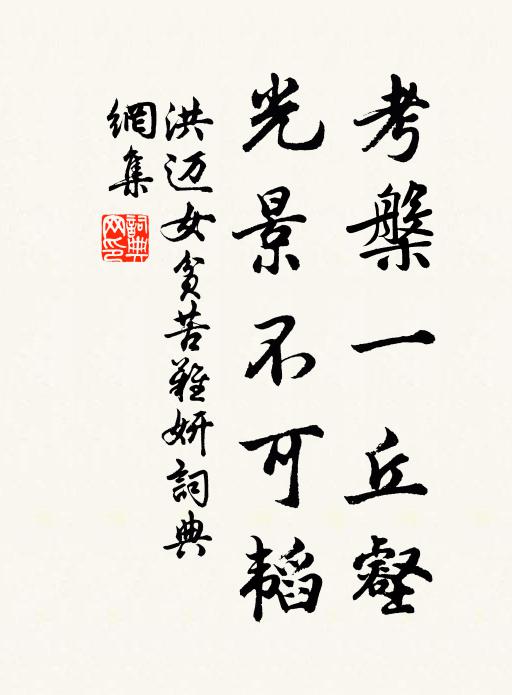 考槃一丘壑
光景不可韬
洪迈女贫苦难妍詞典
網集
詞典网印